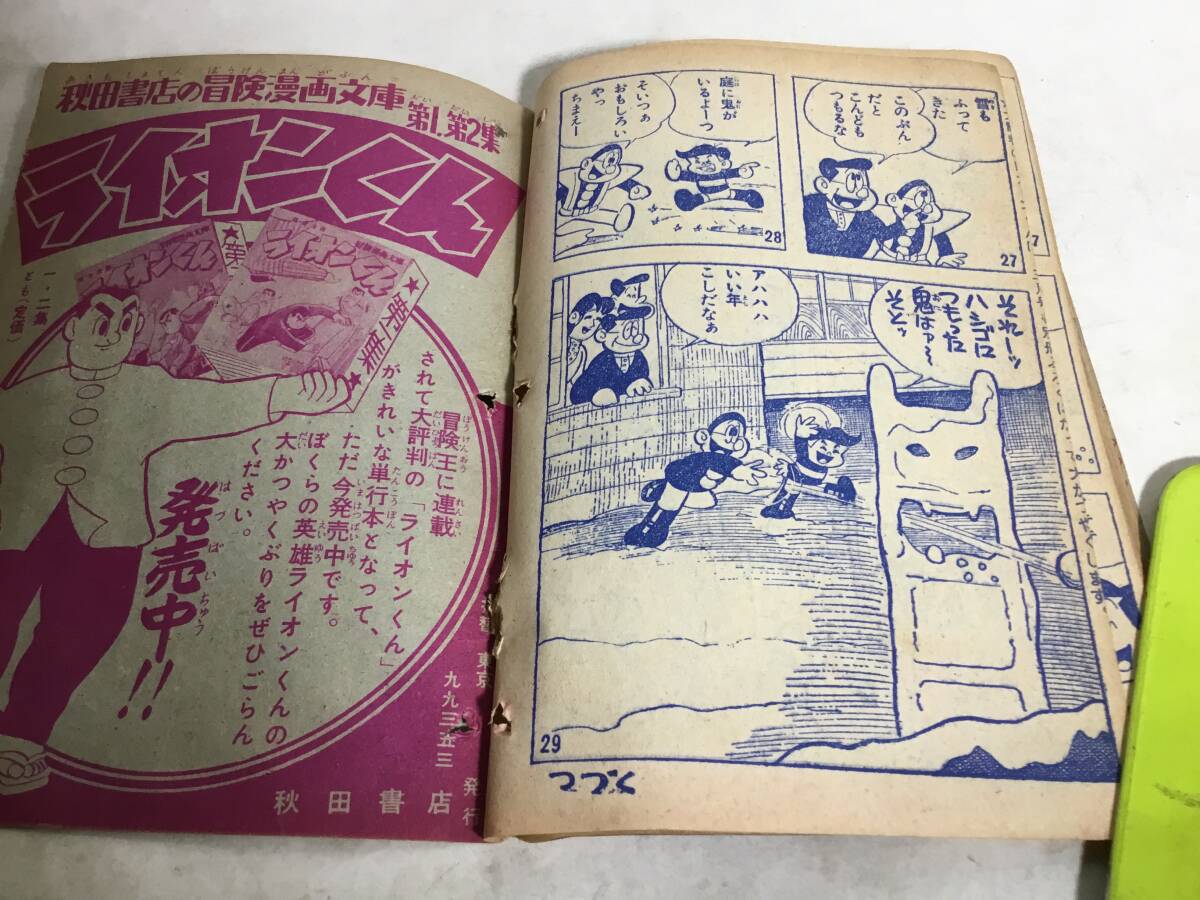 秋田書店の冒険漫画文庫
第1、第2集
ライオンくん
ライオンくん
一・二集
ども(定価
冒険王に連載
されて大評判の「ライオンくん」
がきれいな単行本となって、
ただ今発売中です。
ぼくらの英雄ライオンくんの
大かつやくぶりをぜひごらん
ください。
発売中!!
東京
九九三五三
秋田書店
発行
雪も
ふって
きた
このぶん
だと
こんども
つもるな
27
庭に鬼が
いるよーっ
そいつぁ
おもしろい
やっ
ちまえー
28
それーッ
ハシゴに
つもった
鬼はァ〜
そとッ
アハハハ
いい年
こしだなぁ
29
つづく